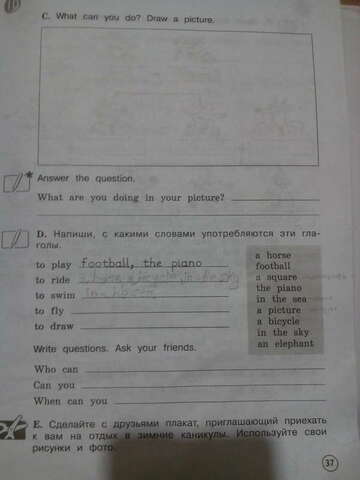 C. What can you do? Draw a picture.
Answer the question.
What are you doing in your picture?
D. Напиши, с какими словами употребляются эти гла-
голы.
to play football, the piano
to ride
to swim
to fly
to draw
a horse
football
a square
the piano
in the sea
a picture
a bicycle
in the sky
an elephant
Write questions. Ask your friends.
Who can
Can you
When can you
E. Сделайте с друзьями плакат, приглашающий приехать
к вам на отдых в зимние каникулы. Используйте свои
рисунки и фото.
37